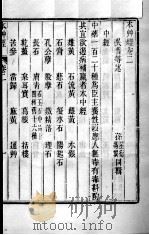 本草經卷二
吳普等述 孫星衍
同輯
中經
中藥一百二十種爲臣主養性以應人無毒有毒斟酌
其宜欲遏病補羸者本中經
雄黃 石流黃 雌黃 水銀
石膏 慈石 凝水石 陽起石
孔公孽 殷孽 鐵精落 理石
長石 膚青
乾薑 枲耳實 葛根 括樓
苦參 當歸 麻黃 通草